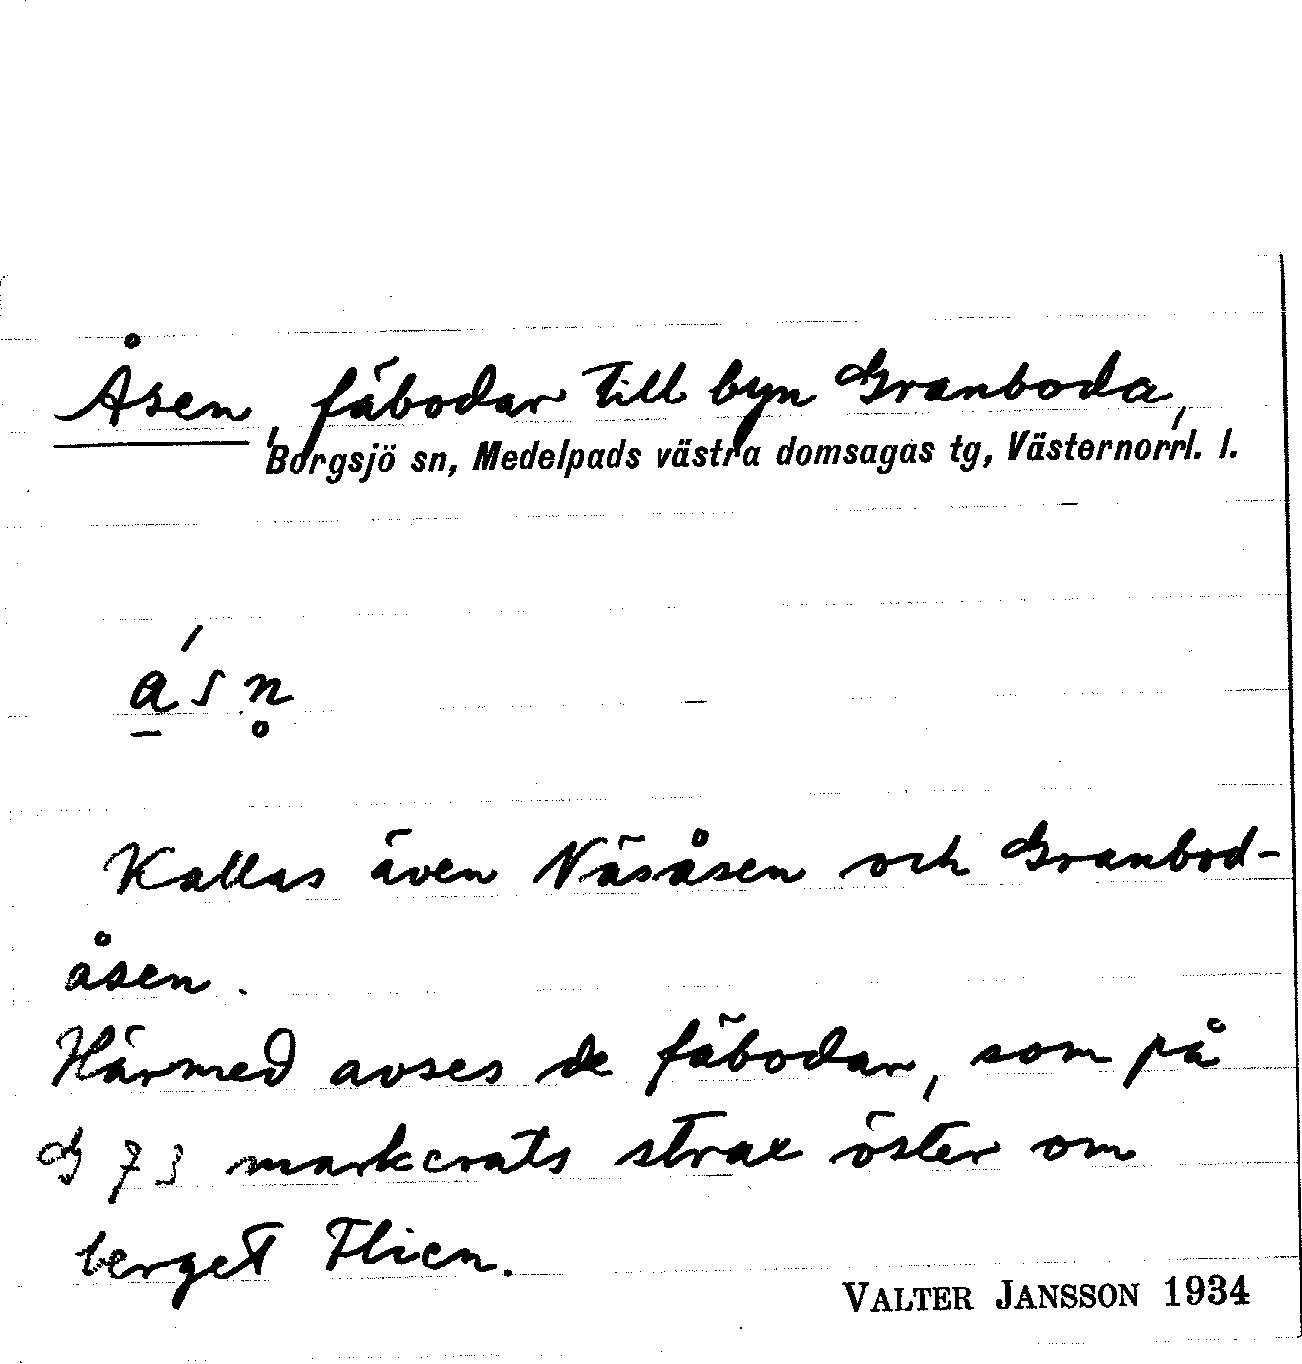 Åsen, fäbodar till byn Granboda,
Borgsjö sn, Medelpads västra domsagas tg, Västernorrl. l.
á̱sn̥
Kallas även Näsåsen och Granbod-
åsen.
Härmed avses de fäbodar, som på
G 73 markerats strax öster om
berget Flien.
VALTER JANSSON 1934